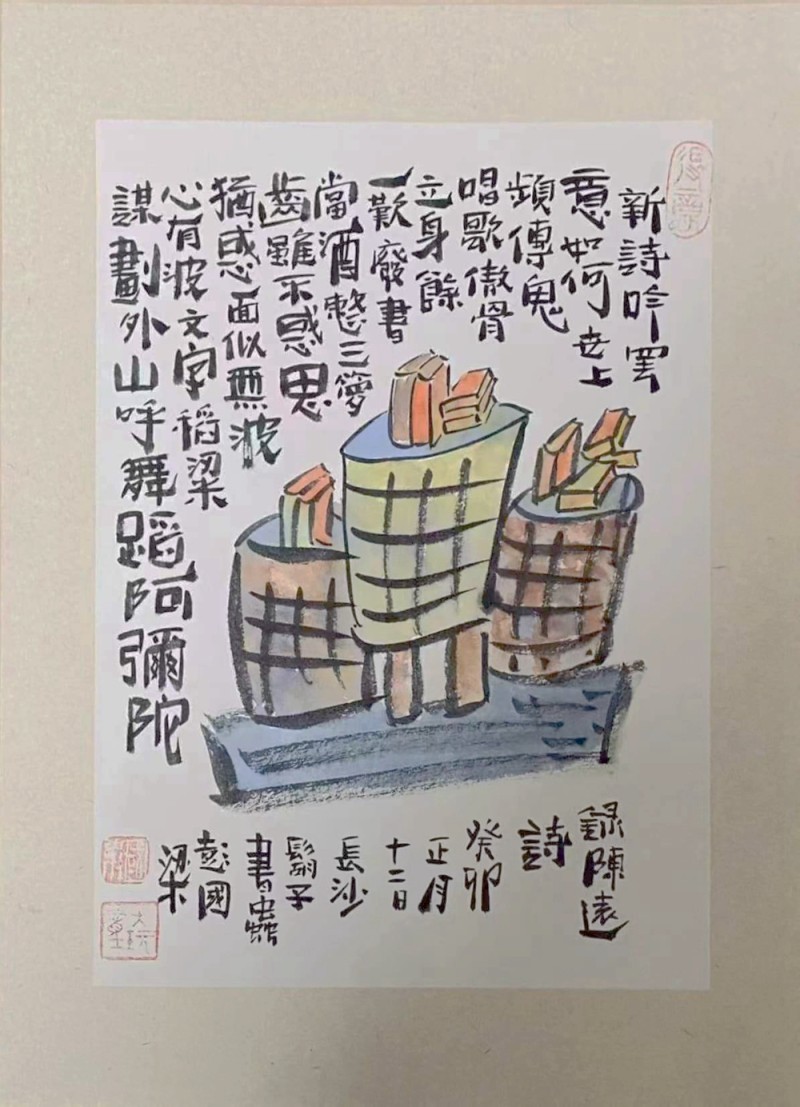 新詩吟罢
意如何世上
頻傳鬼
唱歌傲骨
立身餘
一歎廢書
當酒整三籮
齒雖不惑思
猶惑面似無波
心有波文字稻梁
謀劃外山呼舞蹈阿彌陀
録陳遠
詩
癸卯
正月
十二日
長沙
鬍子
書蟲
彭國
梁